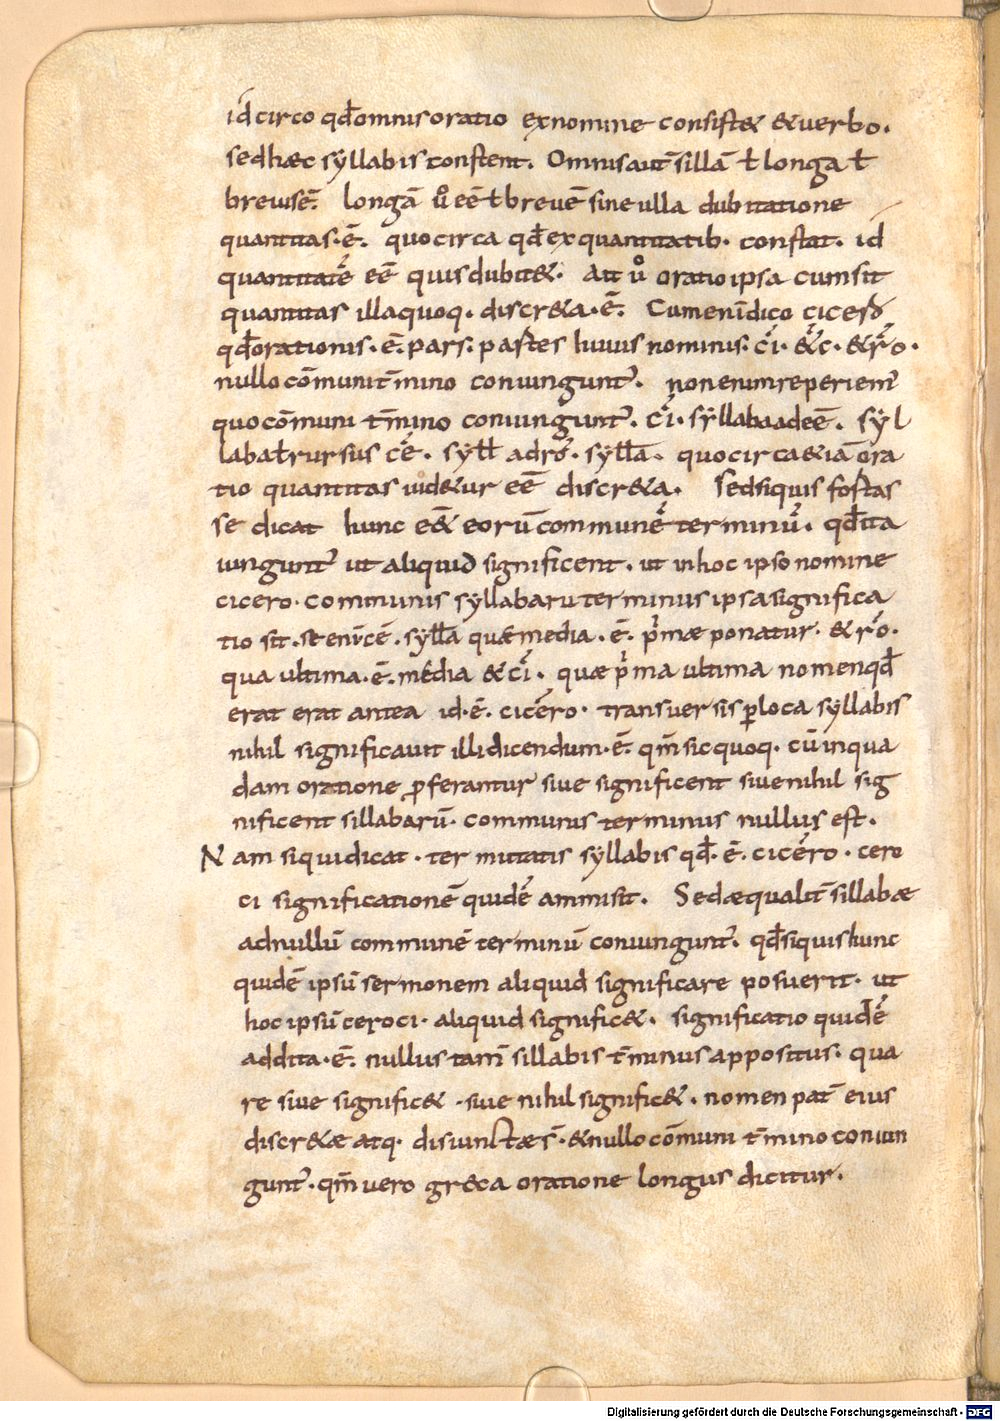 idcirco qđ omnis oratio ex nomine consist& & uerbo.
sed hæc syllabis constent. Omnis aut̄ sillā ł longa ł
breuis ē. longā ů eē ł breuē sine ulla dubitatione
quantitas · ē. quocirca qđ ex quantitatib· constat. id
quantitatē eē quis dubit&. At ů oratio ipsa cum sit
quantitas illa quoq· discr&a · ē. Cum enī dico cicero
qđ orationis · ē. pars. partes huius nominis. cí · &́c · & ŕo ·
nullo cōmuni t̄mino coniungunt᷒. non enim reperiem᷒
quo cōmuni t̄mino coniungunt᷒. cí · syllaba ad eē. syl
laba ł rursus cē. syll̄ ad ro. syll̄a. quocirca &iā ora
tio quantitas uid&ur eē discr&a. Sed si quis fortas
se dicat hunc eē& eorū communē terminū. qđ ita
iungunt᷒ ut aliquid significent. ut in hoc ipso nomine
cicero. communis syllabarū terminus ipsa significa
tio sit. syll̄a quæ media · ē. p̍mæ ponatur. & ŕo.
qua ultima · ē. média & cí. quæ p̍ma ultima nomen qđ
erat erat antea id · ē. cicéro. transuersis ꝑ loca syllabis
nihil significauit illi dicendum · ē. qm̄ sic quoq· cū in qua
dam oratione ꝓferantur siue significent siue nihil sig
nificent sillabarū. communis terminus nullus est.
Nam si qui dicat. ter mutatis syllabis qđ · ē. cicéro. cero
ci significationē quidē ammisit. Sed æqualit̄ sillabæ
ad nullū communē terminū coniungunt᷒. qđ si quis hunc
quidē ipsū sermonem aliquid significare posuerit. ut
hoc ipsū ceroci. aliquid signific&. significatio quidē
addita · ē. nullus tam̄ sillabis t̄minus appositus. qua
re siue signific& · siue nihil signific&. nomen pat̄ eius
discr&æ atq· disiunctæ s̄ · & nullo cōmuni t̄mino coniun
gunt᷒. qm̄ uero greca oratione longus dicitur.
Digitalisierung gefördert durch die Deutsche Forschungsgemeinschaft - DFG